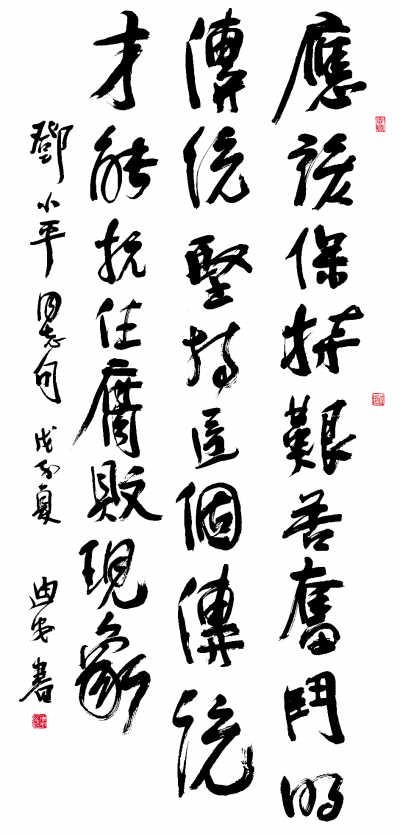 應該保持艱苦奮鬥的
傳統堅持這個傳統
才能抗住腐敗現象
鄧小平同志句 戊子夏 迪安書